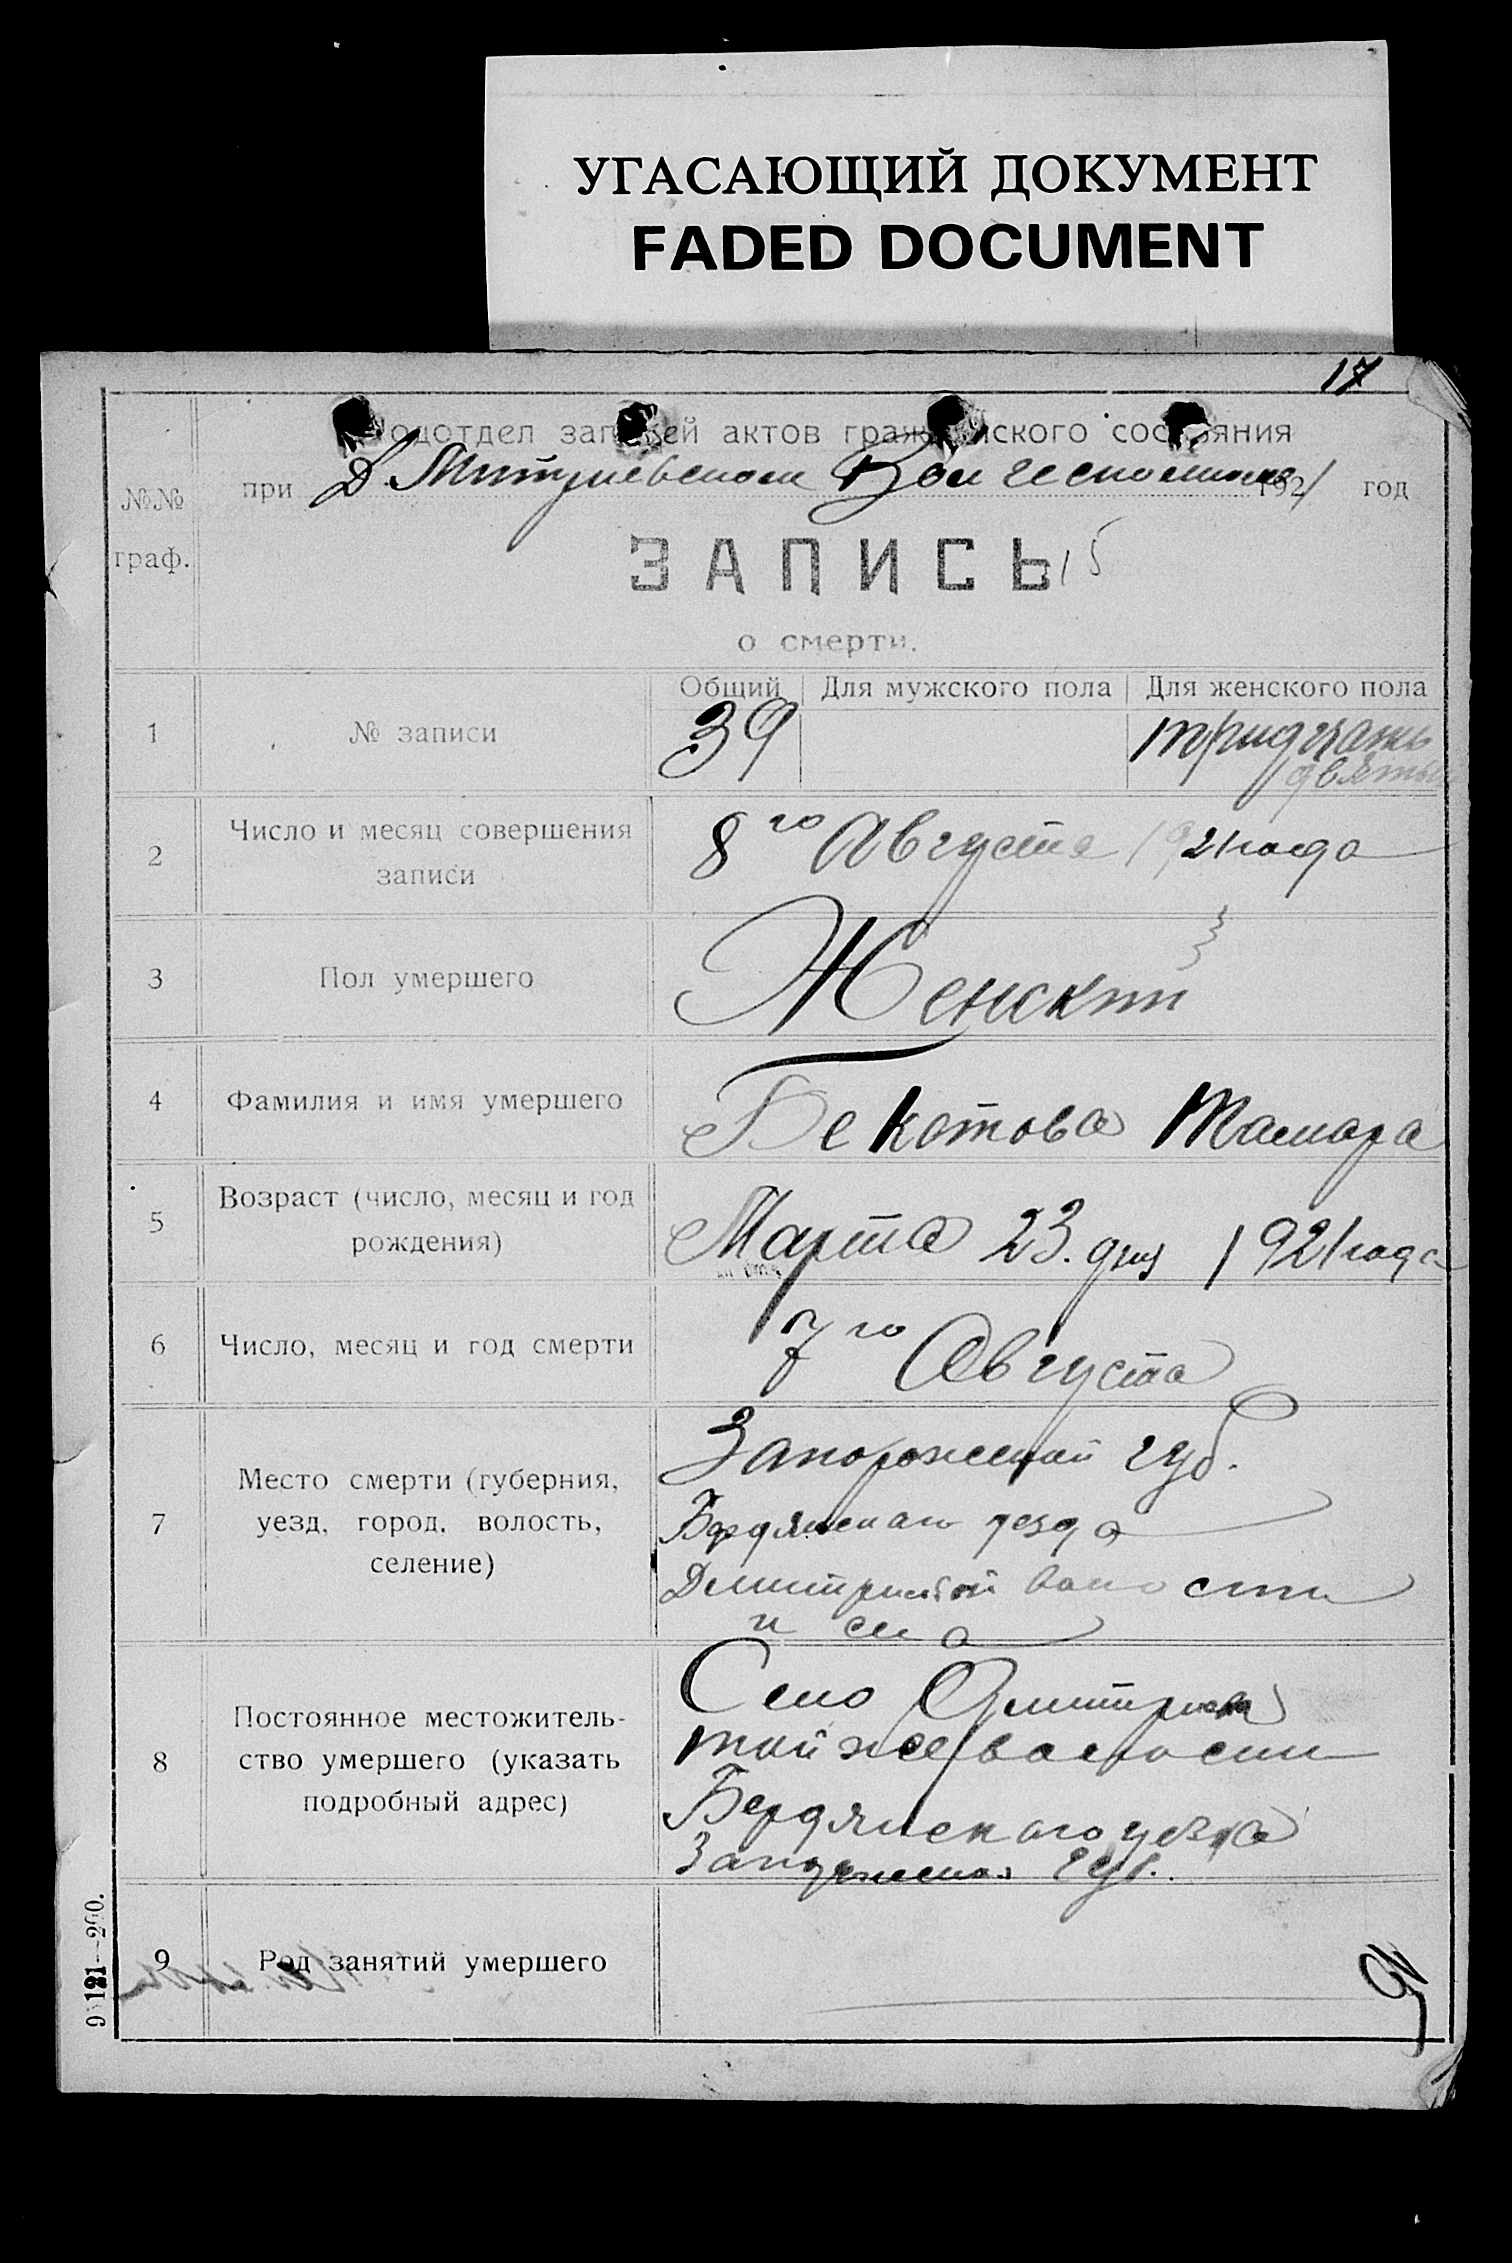 УГАСАЮЩИЙ ДОКУМЕНТ
FADED DOCUMENT
17
Подотдел записей актов гражданского состояния
при Дмитриевском Волисполкоме 1921 год
№№
граф.
ЗАПИСЬ 15
о смерти.
Общий Для мужского пола Для женского пола
1 № записи 39 тридцать
двятый
2 Число и месяц совершения
записи
8го Августа 1921 года
3 Пол умершего Женский
4 Фамилия и имя умершего Бекотова Тамара
5 Возраст (число, месяц и год
рождения)
Марта 23. дня 1921 года
6 Число, месяц и год смерти 7го Августа
7 Место смерти (губерния,
уезд, город, волость,
селение)
Запорожской губ.
Бердянскаго уезда
Дмитриевой волости
и села
8 Постоянное местожитель-
ство умершего (указать
подробный адрес)
Село Дмитриевка
той же волости
Бердянского уезда
Запорожской Губ.
9 Род занятий умершего